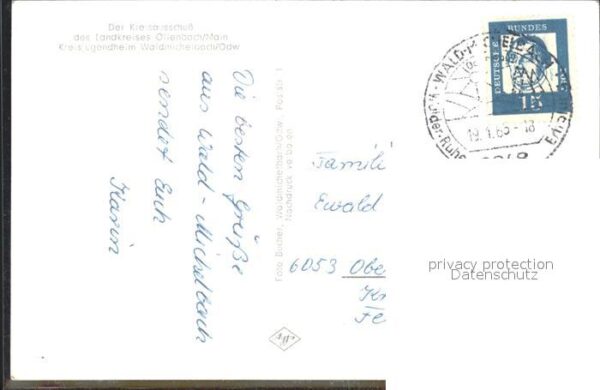 Der Kreisausschuß
des Landkreises Offenbach/Main
Kreisjugendheim Waldmichelbach/Odw
Die besten Grüße
aus Wald-Michelbach
sendet Euch
Karin
Foto Bücher, Waldmichelbach/Odw., Postfach 1
Nachdruck verboten
DEUTSCHE BUNDES
15
WALD-MICHELBACH
19.1.65-18
Famili
Ewald
6053 Obe
Kr
Fe
privacy protection
Datenschutz